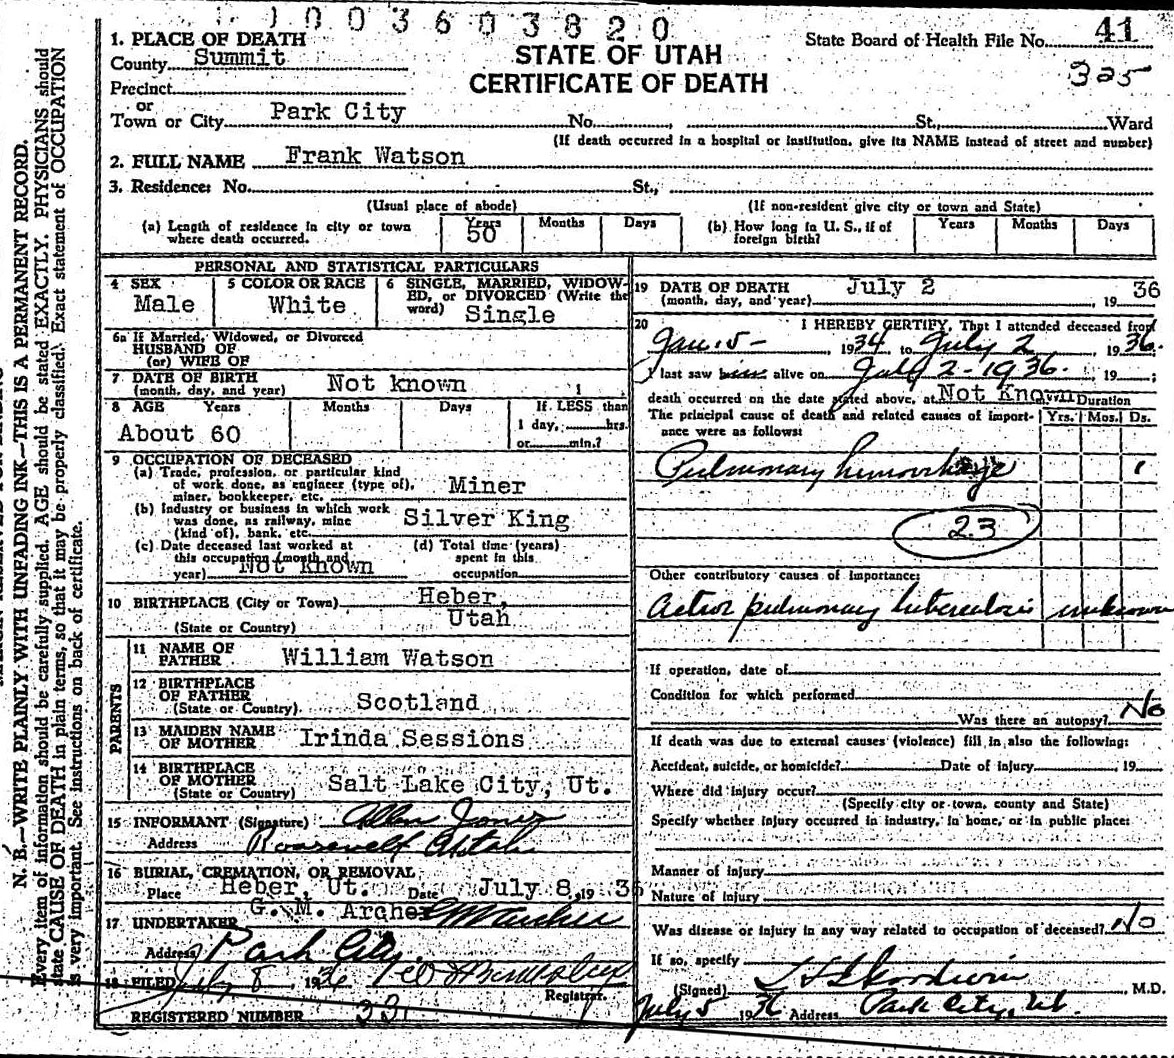 1003603820
1. PLACE OF DEATH
County Summit
STATE OF UTAH
CERTIFICATE OF DEATH
State Board of Health File No. 41
325
Precinct
or
Town or City Park City No. St., Ward
(If death occurred in a hospital or institution, give its NAME instead of street and number)
2. FULL NAME Frank Watson
3. Residence: No. St.,
(Usual place of abode) (If non-resident give city or town and State)
(a) Length of residence in city or town where death occurred. Years 50 Months Days
(b) How long in U. S., if of foreign birth? Years Months Days
PERSONAL AND STATISTICAL PARTICULARS
4 SEX Male
5 COLOR OR RACE White
6 SINGLE, MARRIED, WIDOWED, or DIVORCED (Write the word) Single
6a If Married, Widowed, or Divorced
HUSBAND OF
(or) WIFE OF
7 DATE OF BIRTH
(month, day, and year) Not known 1
8 AGE Years Months Days If LESS than
1 day, hrs.
or min.?
About 60
9 OCCUPATION OF DECEASED
(a) Trade, profession, or particular kind
of work done, as engineer (type of),
miner, bookkeeper, etc. Miner
(b) Industry or business in which work
was done, as railway, mine
(kind of), bank, etc. Silver King
(c) Date deceased last worked at
this occupation (month and
year) Not known
(d) Total time (years)
spent in this
occupation
10 BIRTHPLACE (City or Town) Heber,
(State or Country) Utah
PARENTS
11 NAME OF
FATHER William Watson
12 BIRTHPLACE
OF FATHER
(State or Country) Scotland
13 MAIDEN NAME
OF MOTHER Irinda Sessions
14 BIRTHPLACE
OF MOTHER
(State or Country) Salt Lake City, Ut.
15 INFORMANT (Signature) Allen Jones
Address Roosevelt Utah
16 BURIAL, CREMATION, OR REMOVAL
Place Heber, Ut. Date July 8, 19 36
17 UNDERTAKER G. M. Archer GM Archer
Address Park City.
18 FILED July 8 1936
Registrar.
REGISTERED NUMBER
19 DATE OF DEATH
(month, day, and year) July 2, 19 36
20 I HEREBY CERTIFY, That I attended deceased from
Jan. 5 - , 1934 to July 2 , 1936.
I last saw him alive on July 2 - 1936. , 19 ;
death occurred on the date stated above, at Not Known Duration
The principal cause of death and related causes of importance were as follows: Yrs. Mos. Ds.
Pulmonary hemorrhage 1
23
Other contributory causes of importance:
Active pulmonary tuberculosis unknown
If operation, date of
Condition for which performed
Was there an autopsy? No
If death was due to external causes (violence) fill in also the following:
Accident, suicide, or homicide? Date of injury , 19
Where did injury occur?
(Specify city or town, county and State)
Specify whether injury occurred in industry, in home, or in public place:
Manner of injury
Nature of injury
Was disease or injury in any way related to occupation of deceased? No
If so, specify
(Signed) Goodwin , M.D.
July 5 1936 Address Park City, Ut.
N. B.—WRITE PLAINLY WITH UNFADING INK—THIS IS A PERMANENT RECORD.
Every item of information should be carefully supplied. AGE should be stated EXACTLY. PHYSICIANS should
state CAUSE OF DEATH in plain terms, so that it may be properly classified. Exact statement of OCCUPATION
is very important. See instructions on back of certificate.